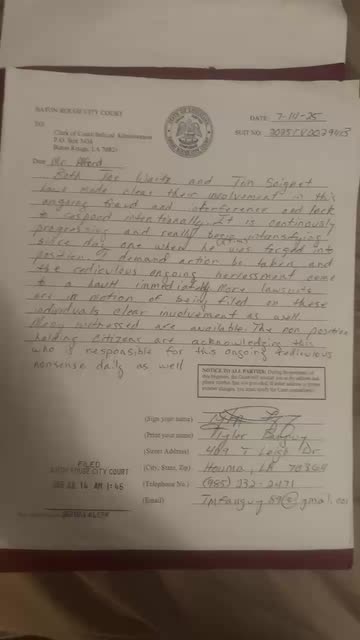 BATON ROUGE CITY COURT
DATE: 7-14-25
TO:
SUIT NO:
Clerk of Court/Judicial Administration
P.O. Box 3438
Baton Rouge, LA 70821
Dear Mr
Both Joe and Tim Soignet
have made clear their involvement in this
ongoing fraud and interference and lack
to respond intentionally. It is continously
progressing and really been intensifying
since day one when he was forged into
position. I demand action be taken and
the rediculous ongoing herressment come
to a hault immediately. More lawsuits
are in motion of being filed on these
individuals clear involvement as well.
Many witnessed are available. The non position
holding citizens are acknowledging this
who is responsible for this ongoing tedinious
nonsense daily as well
NOTICE TO ALL PARTIES:
(Sign your name)
(Print your name) Tyler
(Street Address) 409 T Leigh Dr
(City, State, Zip) Houma, LA 70364
(Telephone No.) (985) 232-2431
(Email)
FILED
BATON ROUGE CITY COURT
14 AM 1:45